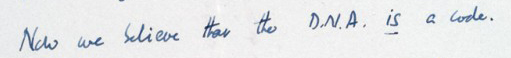 Now we believe that the D.N.A. is a code.